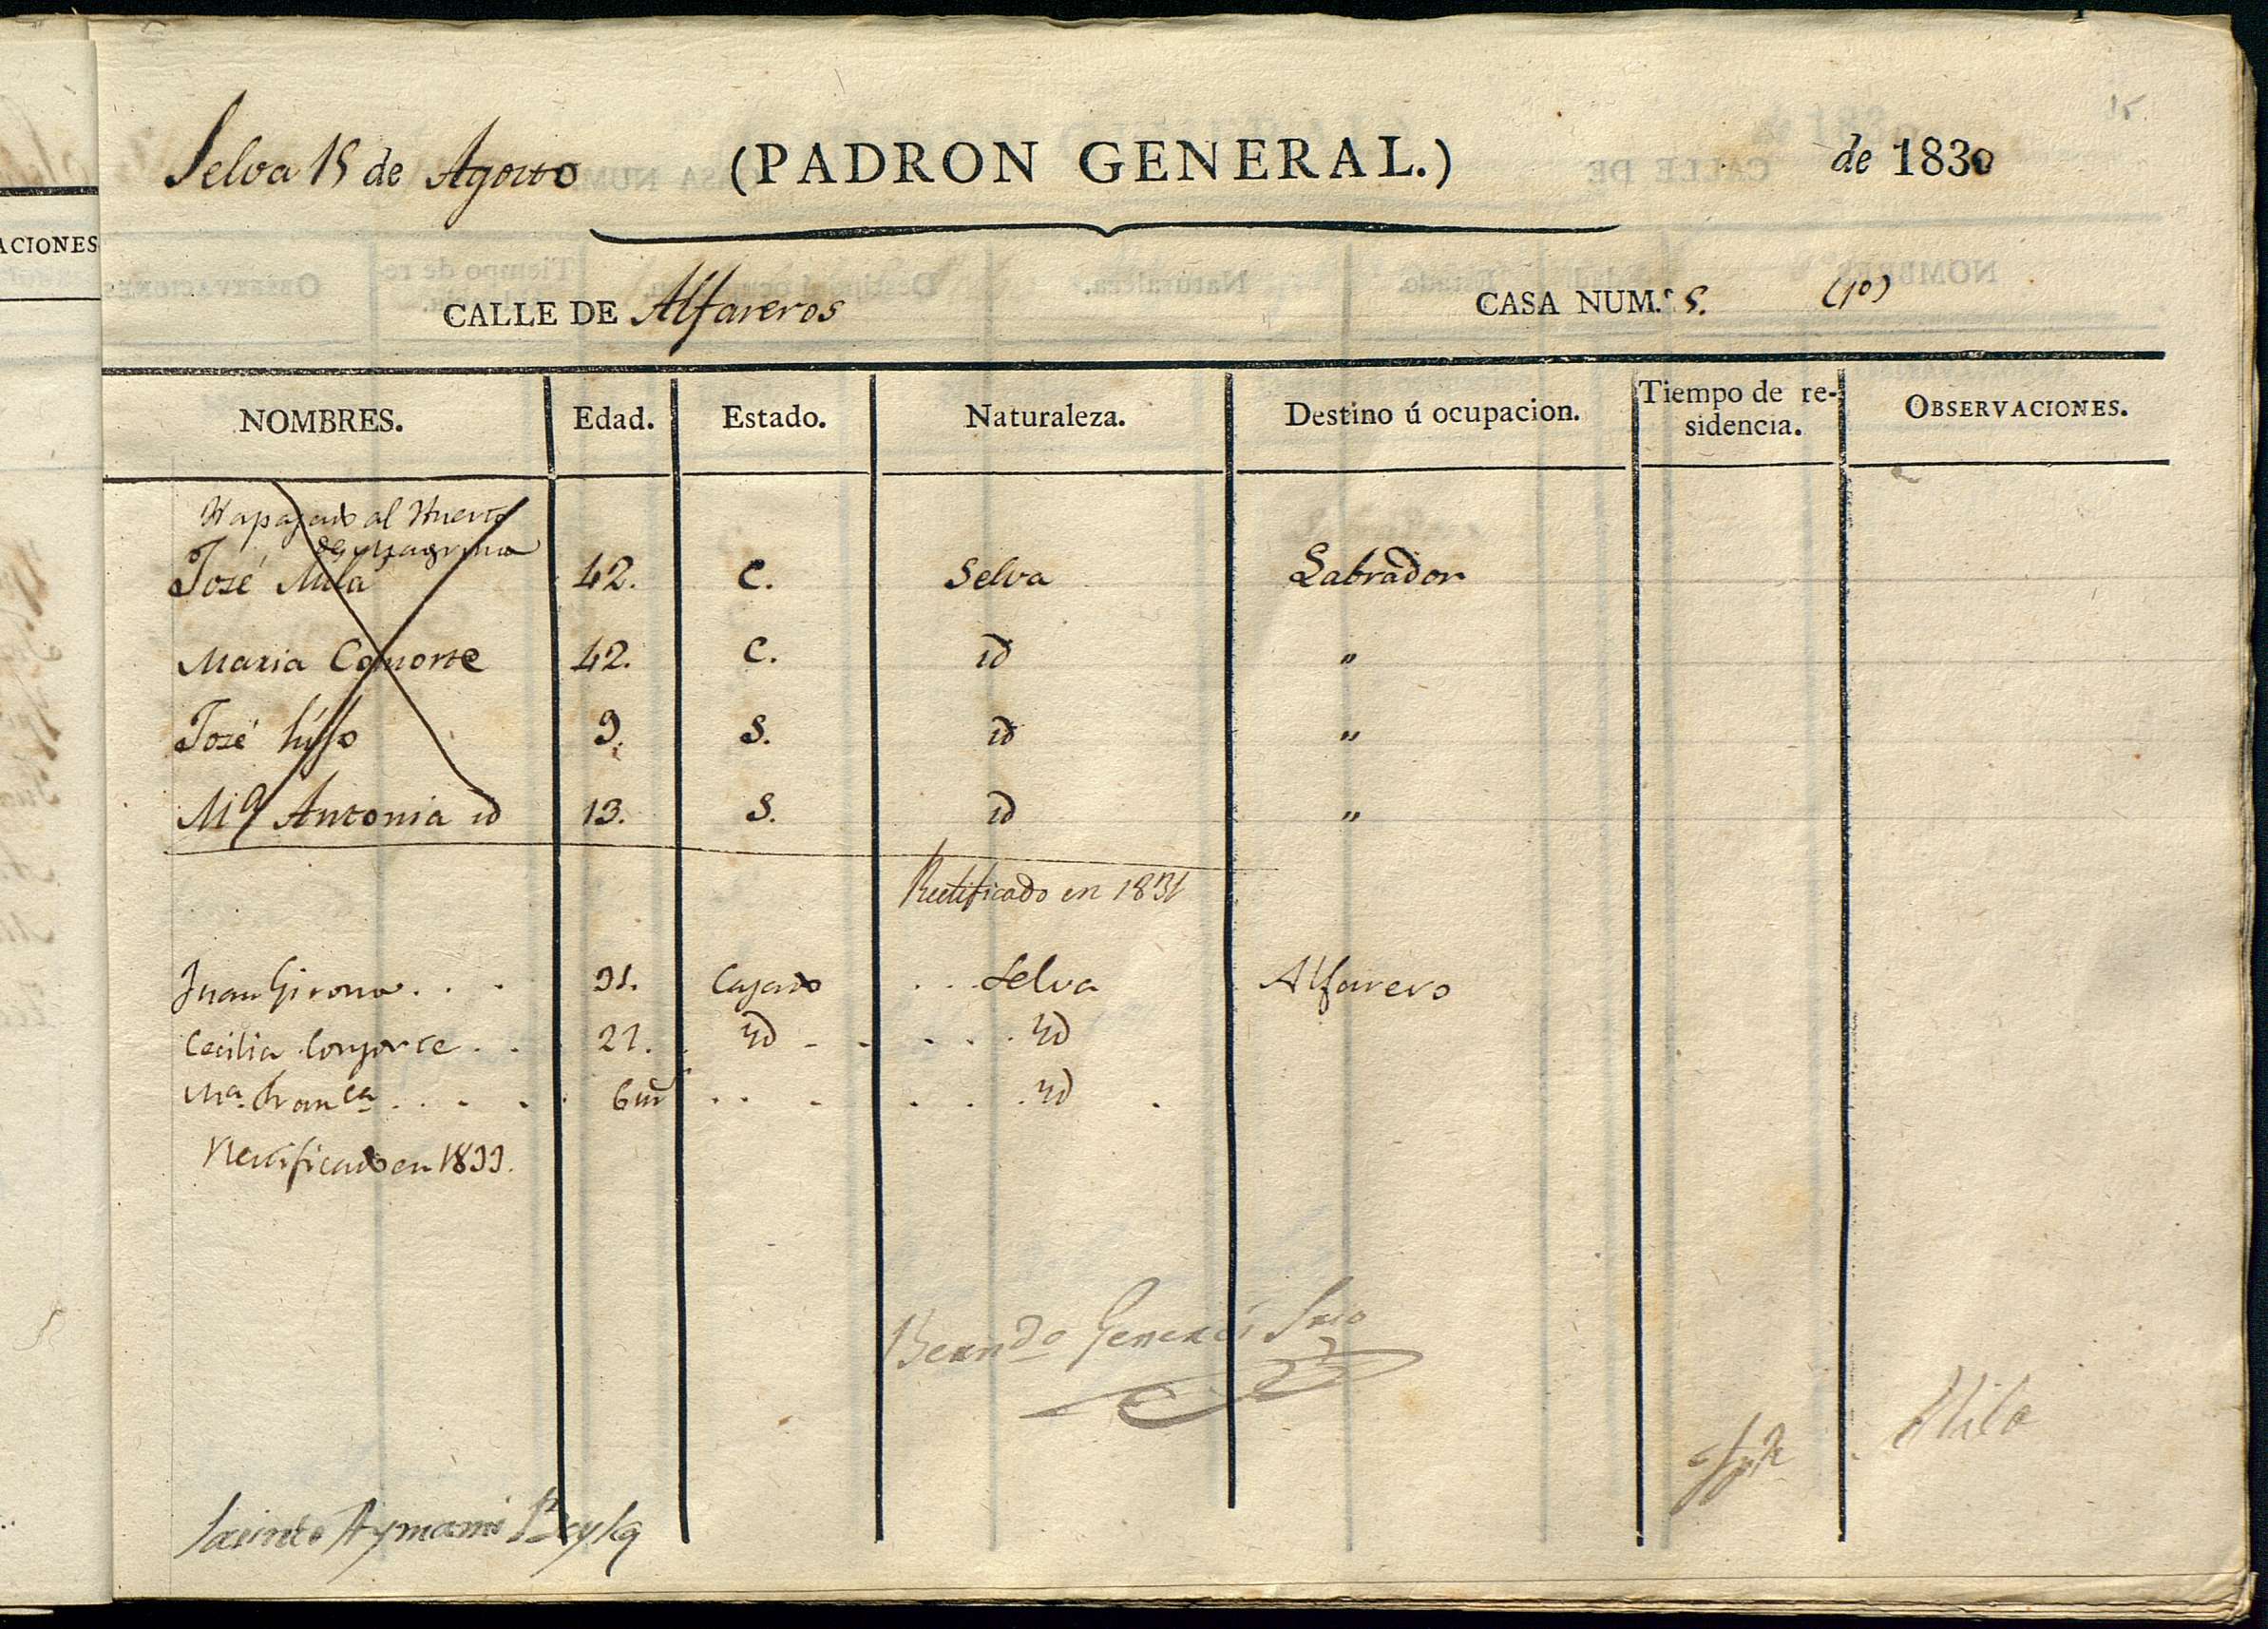 15
Selva 15 de Agosto (PADRON GENERAL.) de 1830
CALLE DE Alfareros CASA NUM.º 5. (10)
ACIONES
NOMBRES. Edad. Estado. Naturaleza. Destino ú ocupacion. Tiempo de re-sidencia. OBSERVACIONES.
Ha pasado al Huerto
de
José Milá 42. C. Selva Labrador
Maria Consorte 42. C. id "
José hijo 9. S. id "
Mª Antonia id 13. S. id "
Rectificado en 1831
Juan Girona . . . 31. Casado . . . Selva Alfarero
Cecilia Consorte . . 21. id - - . . . id
Mª. Franca . . . . 6 m . . . . . . id .
Rectificado en 1833.
Berndo Generés Srio
Milá
Jacinto Aymamí Bayle